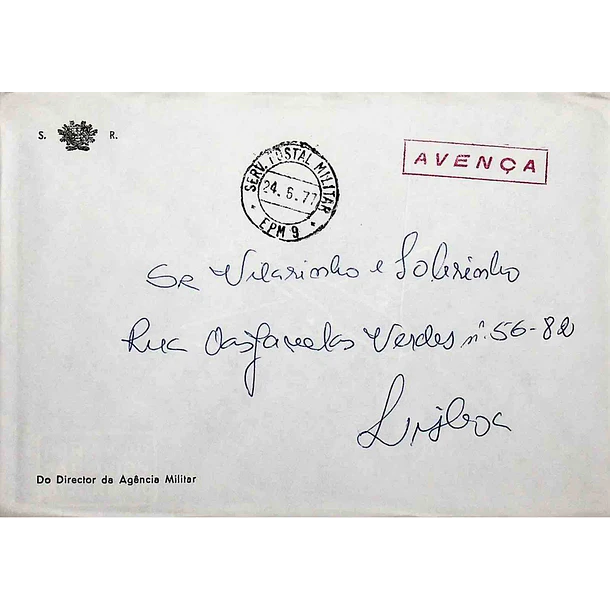 S. R.
AVENÇA
SERV. POSTAL MILITAR
24. 6. 77
EPM 9
Sr Vilarinho e Sobrinho
Rua das Janelas Verdes nº. 56-82
Lisboa
Do Director da Agência Militar